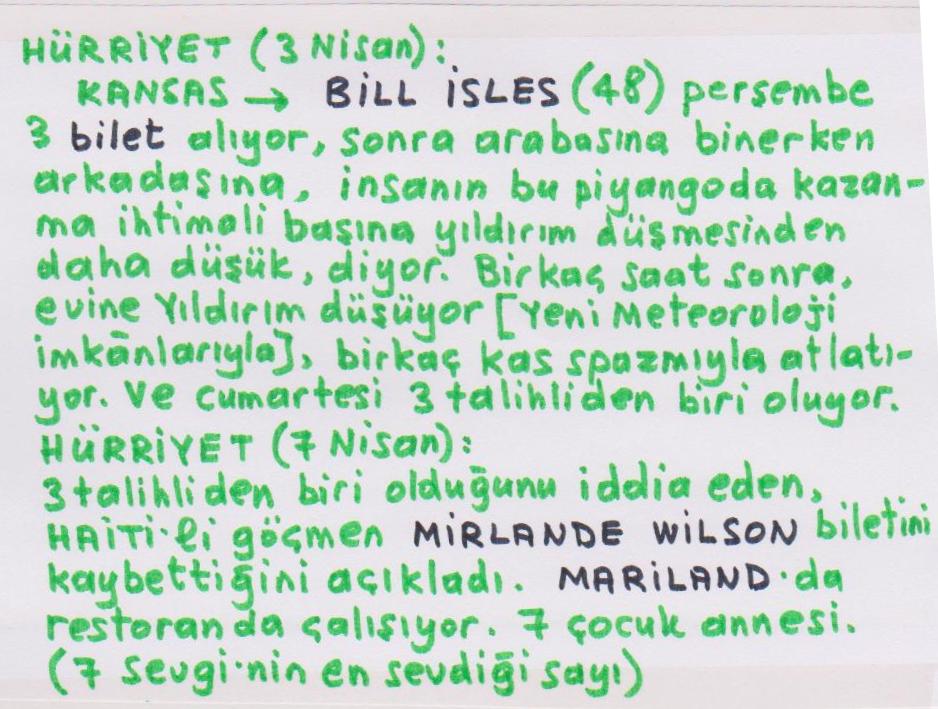 HÜRRİYET (3 Nisan):
KANSAS → BİLL İSLES (48) perşembe
3 bilet alıyor, sonra arabasına binerken
arkadaşına, insanın bu piyangoda kazan-
ma ihtimali başına yıldırım düşmesinden
daha düşük, diyor. Birkaç saat sonra,
evine Yıldırım düşüyor [Yeni Meteoroloji
imkânlarıyla], birkaç kas spazmıyla atlatı-
yor. Ve cumartesi 3 talihliden biri oluyor.
HÜRRİYET (7 Nisan):
3 talihliden biri olduğunu iddia eden,
HAİTİ'li göçmen MİRLANDE WİLSON biletini
kaybettiğini açıkladı. MARİLAND'da
restoranda çalışıyor. 7 çocuk annesi.
(7 Sevgi'nin en sevdiği sayı)